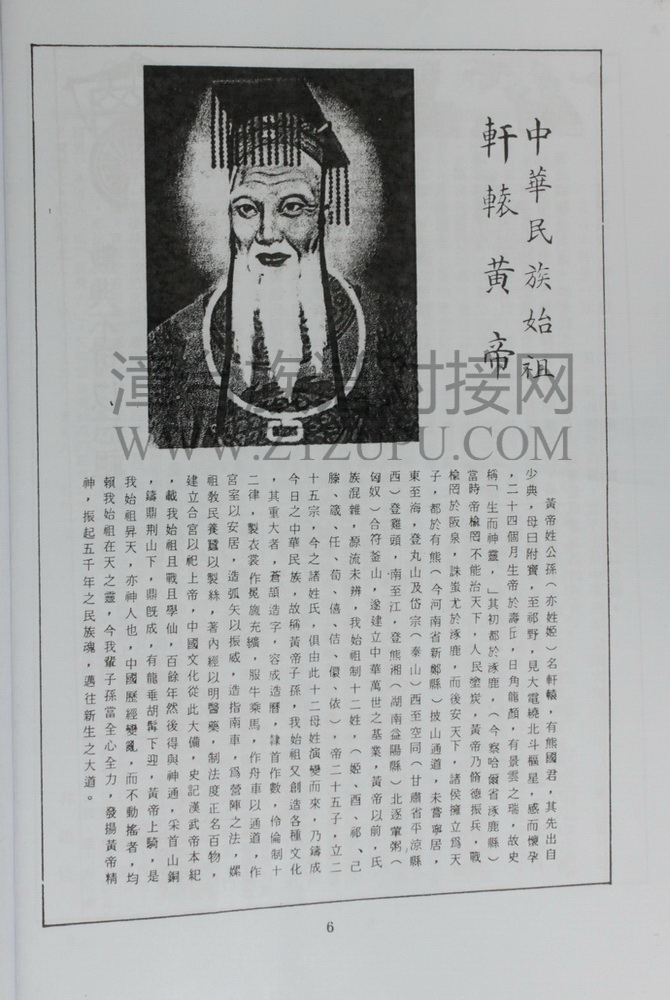 中華民族始祖
軒轅黃帝
黃帝姓公孫（亦姓姬）名軒轅，有熊國君，其先出自
少典，母曰附寶，至祁野，見大電繞北斗樞星，感而懷孕
，二十四個月生帝於壽丘，日角龍顏，有景雲之瑞，故史
稱「生而神靈，」其初都於涿鹿，（今察哈爾省涿鹿縣）
當時帝榆罔不能治天下，人民塗炭，黃帝乃脩德振兵，戰
榆罔於阪泉，誅蚩尤於涿鹿，而後安天下，諸侯擁立爲天
子，都於有熊（今河南省新鄭縣）披山通道，未嘗寧居，
東至海，登丸山及岱宗（泰山）西至空同（甘肅省平涼縣
西）登雞頭，南至江，登熊湘（湖南益陽縣）北逐葷粥（
匈奴）合符釜山，遂建立中華萬世之基業，黃帝以前，氏
族混雜，源流未辨，我始祖制十二姓，（姬、酉、祁、己
滕、葴、任、荀、僖、佶、儇、依），帝二十五子，立二
十五宗，今之諸姓氏，俱由此十二母姓演變而來，乃鑄成
今日之中華民族，故稱黃帝子孫，我始祖又創造各種文化
，其重大者，蒼頡造字，容成造曆，隸首作數，伶倫制十
二律，製衣裳作冕旒充纊，服牛乘馬，作舟車以通道，作
宮室以安居，造弧矢以振威，造指南車，爲營陣之法，嫘
祖教民養蠶以製絲，著內經以明醫藥，制法度正名百物，
建立合宮以祀上帝，中國文化從此大備，史記漢武帝本紀
，載我始祖且戰且學仙，百餘年然後得與神通，采首山銅
，鑄鼎荊山下，鼎既成，有龍垂胡髯下迎，黃帝上騎，是
我始祖昇天，亦神人也，中國歷經變亂，而不動搖者，均
賴我始祖在天之靈，今我輩子孫當全心全力，發揚黃帝精
神，振起五千年之民族魂，邁往新生之大道。
漳台族谱对接网
WWW.ZTZUPU.COM
6